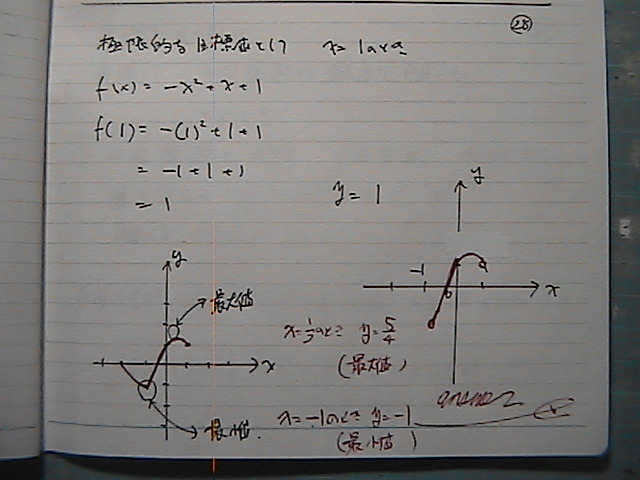 28
極限的な目標点として x = 1のとき
f(x) = -x² + x + 1
f(1) = -(1)² + 1 + 1
= -1 + 1 + 1
= 1
y = 1
y
x
-1
y
x
最大値
最小値
x = 1/2のとき y = 5/4
(最大値)
x = -1のとき y = -1
(最小値)
answer